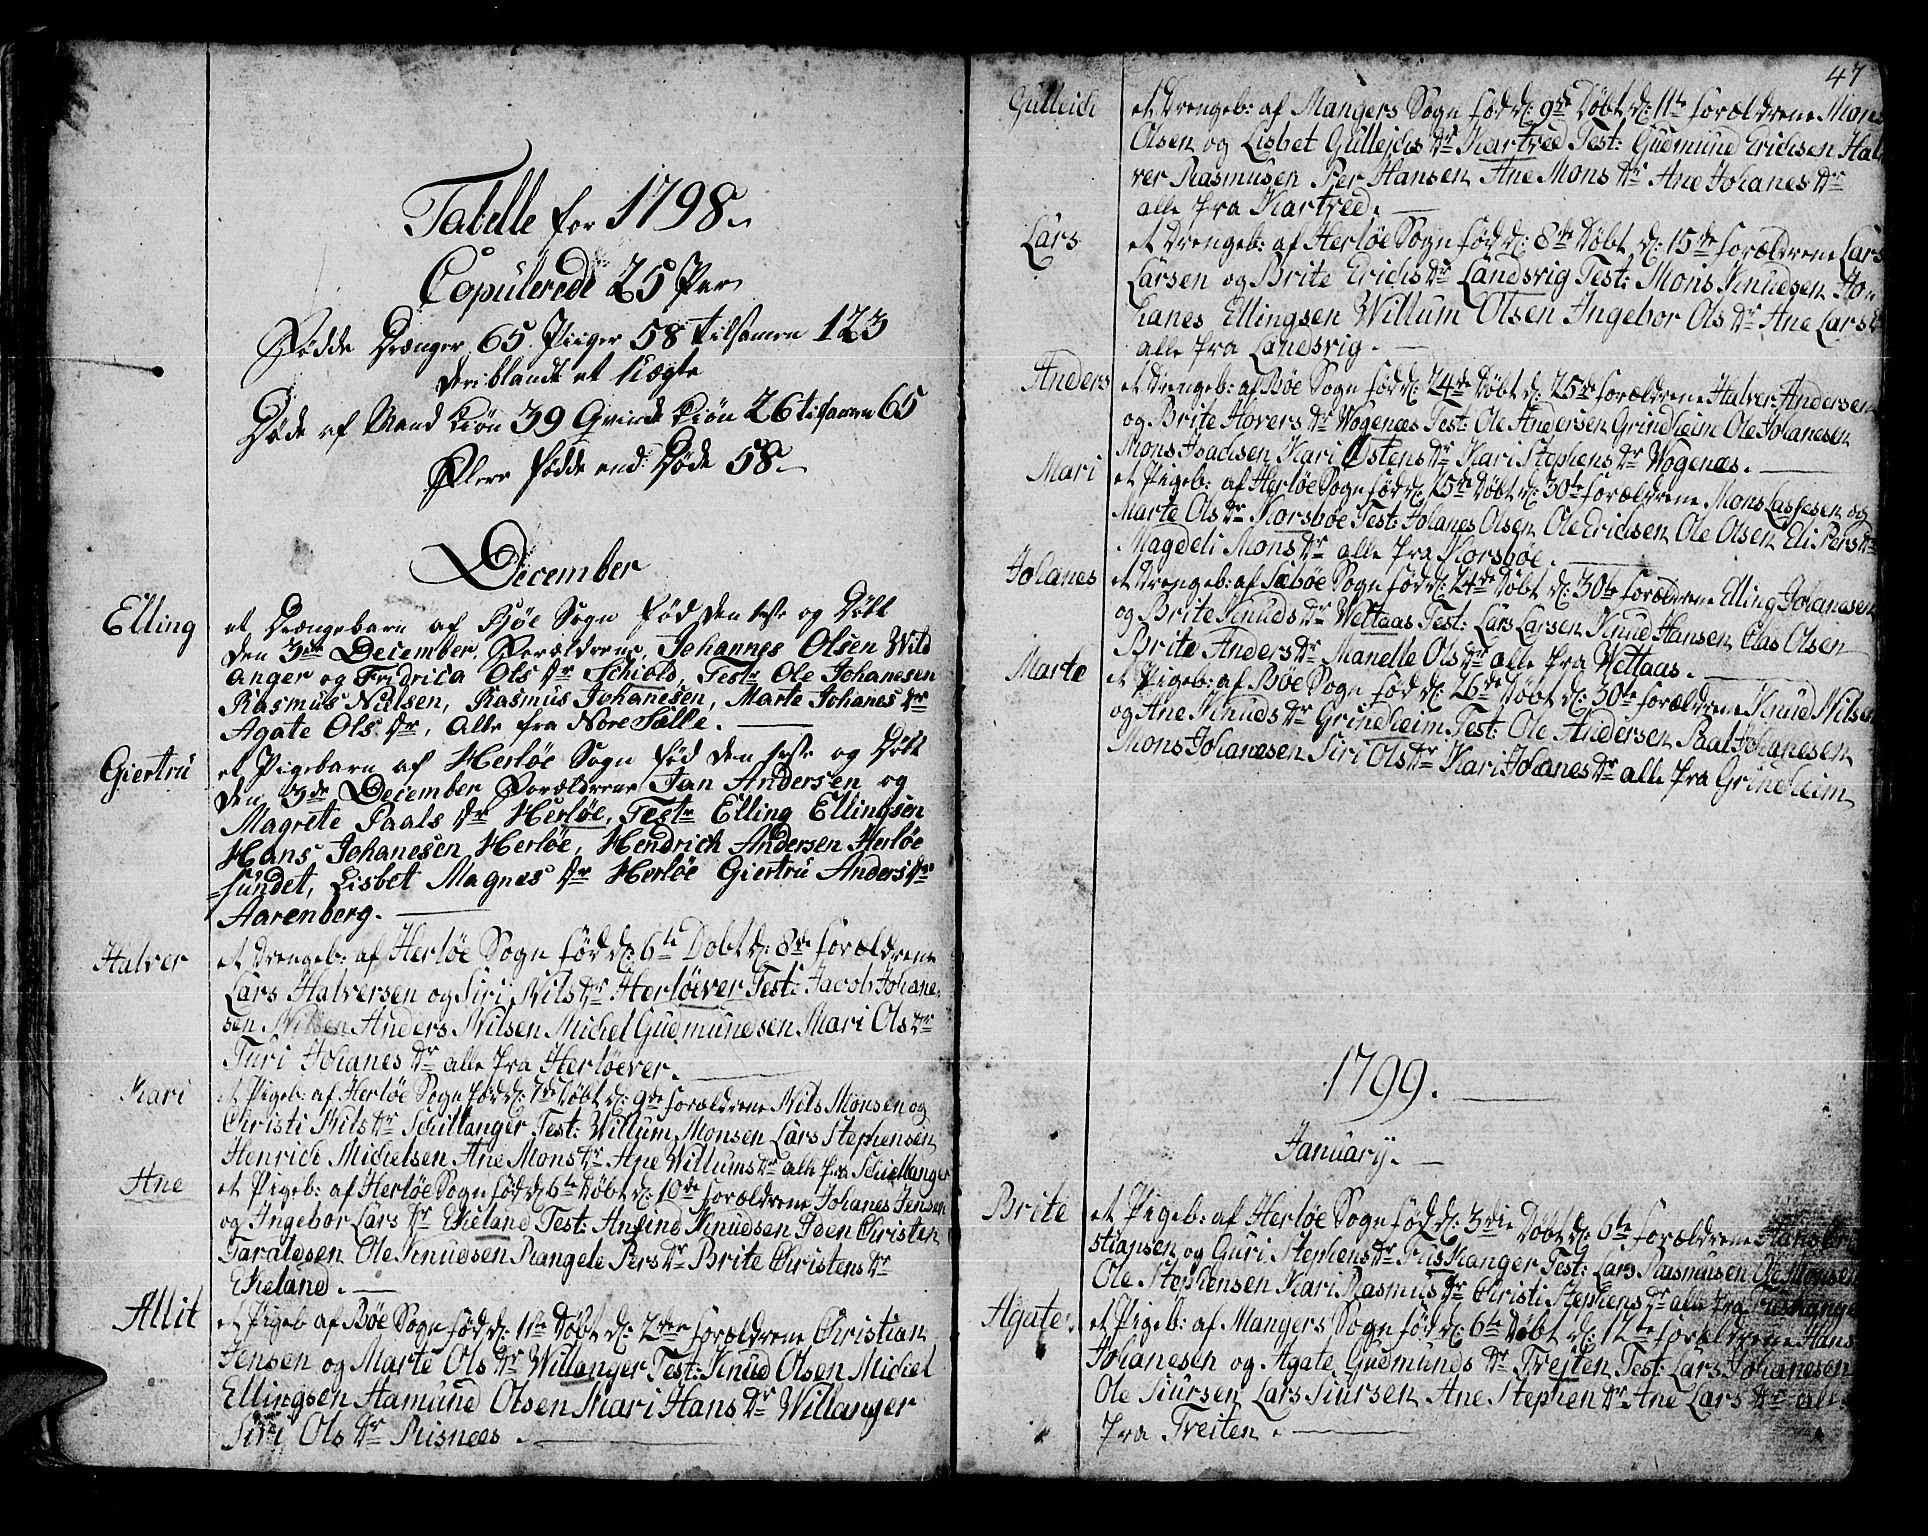 Tabelle for 1798
Copulerede 25 Par
Fødde Drænger 65. Piiger 58 tilsamen 123
deriblandt et Uægte
Døde af Mand Kiøn 39 Qvinde Kiøn 26 tilsamen 65
Flere fødde end Døde 58
December
Elling
et Drængebarn af Bøe Sogn fød den og Døbt
den 3de December, Forældrene, Johannes Olsen Wild
anger og Fridrica Ols dr Schiold, Test: Ole Johanesen
Rasmus Nielsen, Rasmus Johanesen, Marte Johanes dr
Agate Ols dr, Alle fra Nore Sælle.
Giertrü
et Pigebarn af Herløe Sogn fød den og Døbt
den 3de December Forældrene Jan Andersen og
Magrete Paals dr Herløe, Test: Elling Ellingsen
Hans Johanesen Herløe, Hendrich Andersen Herløe
sündet, Lisbet Magnes dr Herløe Giertrü Anders dr
Aarenberg.
Halver
et drengeb: af Herløe Sogn fød d: 6te Døbt d: 8de forældrene
Lars Halversen og Siri Nils dr Herløever Test: Jacob Johane
sen Nilsen Anders Nilsen Michel Gudmundsen Mari Ols dr
Turi Johanes dr alle fra Herløever.
Kari
et Pigeb: af Herløe Sogn fød d: 7de Døbt d: 9de forældrene Nils Monsen og
Christi Nils dr Schillanger Test: Willum Monsen Lars Stephensen
Henrich Michelsen Ane Mons dr Ane Willums dr alle fra Schiellanger
Ane
et Pigeb: af Herløe Sogn fød d: 6te Døbt d: 10de forældrene Johanes Jensen
og Ingebor Lars dr Ekeland Test: Anfind Knudsen Iden Christen
Taraldsen Ole Knudsen Rangele Pers dr Brite Christens dr
Ekeland.
Allit
et Pigeb af Bøe Sogn fød d: 11te Døbt d: forældrene Christian
Jensen og Marte Ols dr Willanger Test: Knud Olsen Michel
Ellingsen Aamund Olsen Mari Hans dr Willanger
Siri Ols dr Risnees.
47
Gulleich
et drengeb: af Mangers Sogn fød d: 9de Døbt d: 11te forældrene Mons
Olsen og Lisbet Gullejchs dr Kartved Test: Gudmund Erichsen Hal
ver Rasmusen Per Hansen Ane Mons dr Ane Johanes dr
alle fra Kartved.
Lars
et drengeb: af Herløe Sogn fød d: 8de Døbt d: 15de forældrene Lars
Larsen og Brite Erichs dr Landsvig Test: Mons Knudsen Jo
hanes Ellingsen Willum Olsen Ingebor Ols dr Ane Lars dr
alle fra Landsvig.
Anders
et drengeb: af Bøe Sogn fød d: 24de Døbt d: 25de forældrene Halver Andersen
og Brite Havers dr Wogenes Test: Ole Andersen Grindheim Ole Johanesen
Mons Isachsen Kari Østens dr Kari Stephens dr Wogenæs.
Mari
et Pigeb: af Herløe Sogn fød d: 25de Døbt d: 30te forældrene Mons Lassesen og
Marte Ols dr Korsbøe Test: Johanes Olsen Ole Erichsen Ole Olsen Eli Pers dr
Magdeli Mons dr alle fra Korsbøe.
Johanes
et drengeb: af Sæbøe Sogn fød d: 24de Døbt d: 30te forældrene Elling Johanesen
og Brite Knuds dr Wettaas Test: Lars Larsen Knud Hansen Clas Olsen
Brite Anders dr Manelle Ols dr alle fra Wettaas.
Marte
et Pigeb: af Bøe Sogn fød d: 26de Døbt d: 30te forældrene Knud Nilsen
og Ane Knuds dr Grindheim Test: Ole Andersen Paal Johanesen
Mons Johanesen Siri Ols dr Kari Johanes dr alle fra Grindheim
1799.
January.
Brite
et Pigeb: af Herløe Sogn fød d: 3die Døbt d: 6te forældrene Hans Kri
stiansen og Guri Stephens dr Fuskanger Test: Lars Rasmusen Ole Monsen
Ole Stephensen Kari Rasmus dr Christi Stephens dr alle fra Fuskanger
Agate
et Pigeb: af Mangers Sogn fød d: 6te Døbt d: 12te forældrene Hans
Johanesen og Agate Gudmunds dr Trejten Test: Lars Johanesen
Ole Siursen Lars Siursen Ane Stephen dr Ane Lars dr alle
fra Treiten.